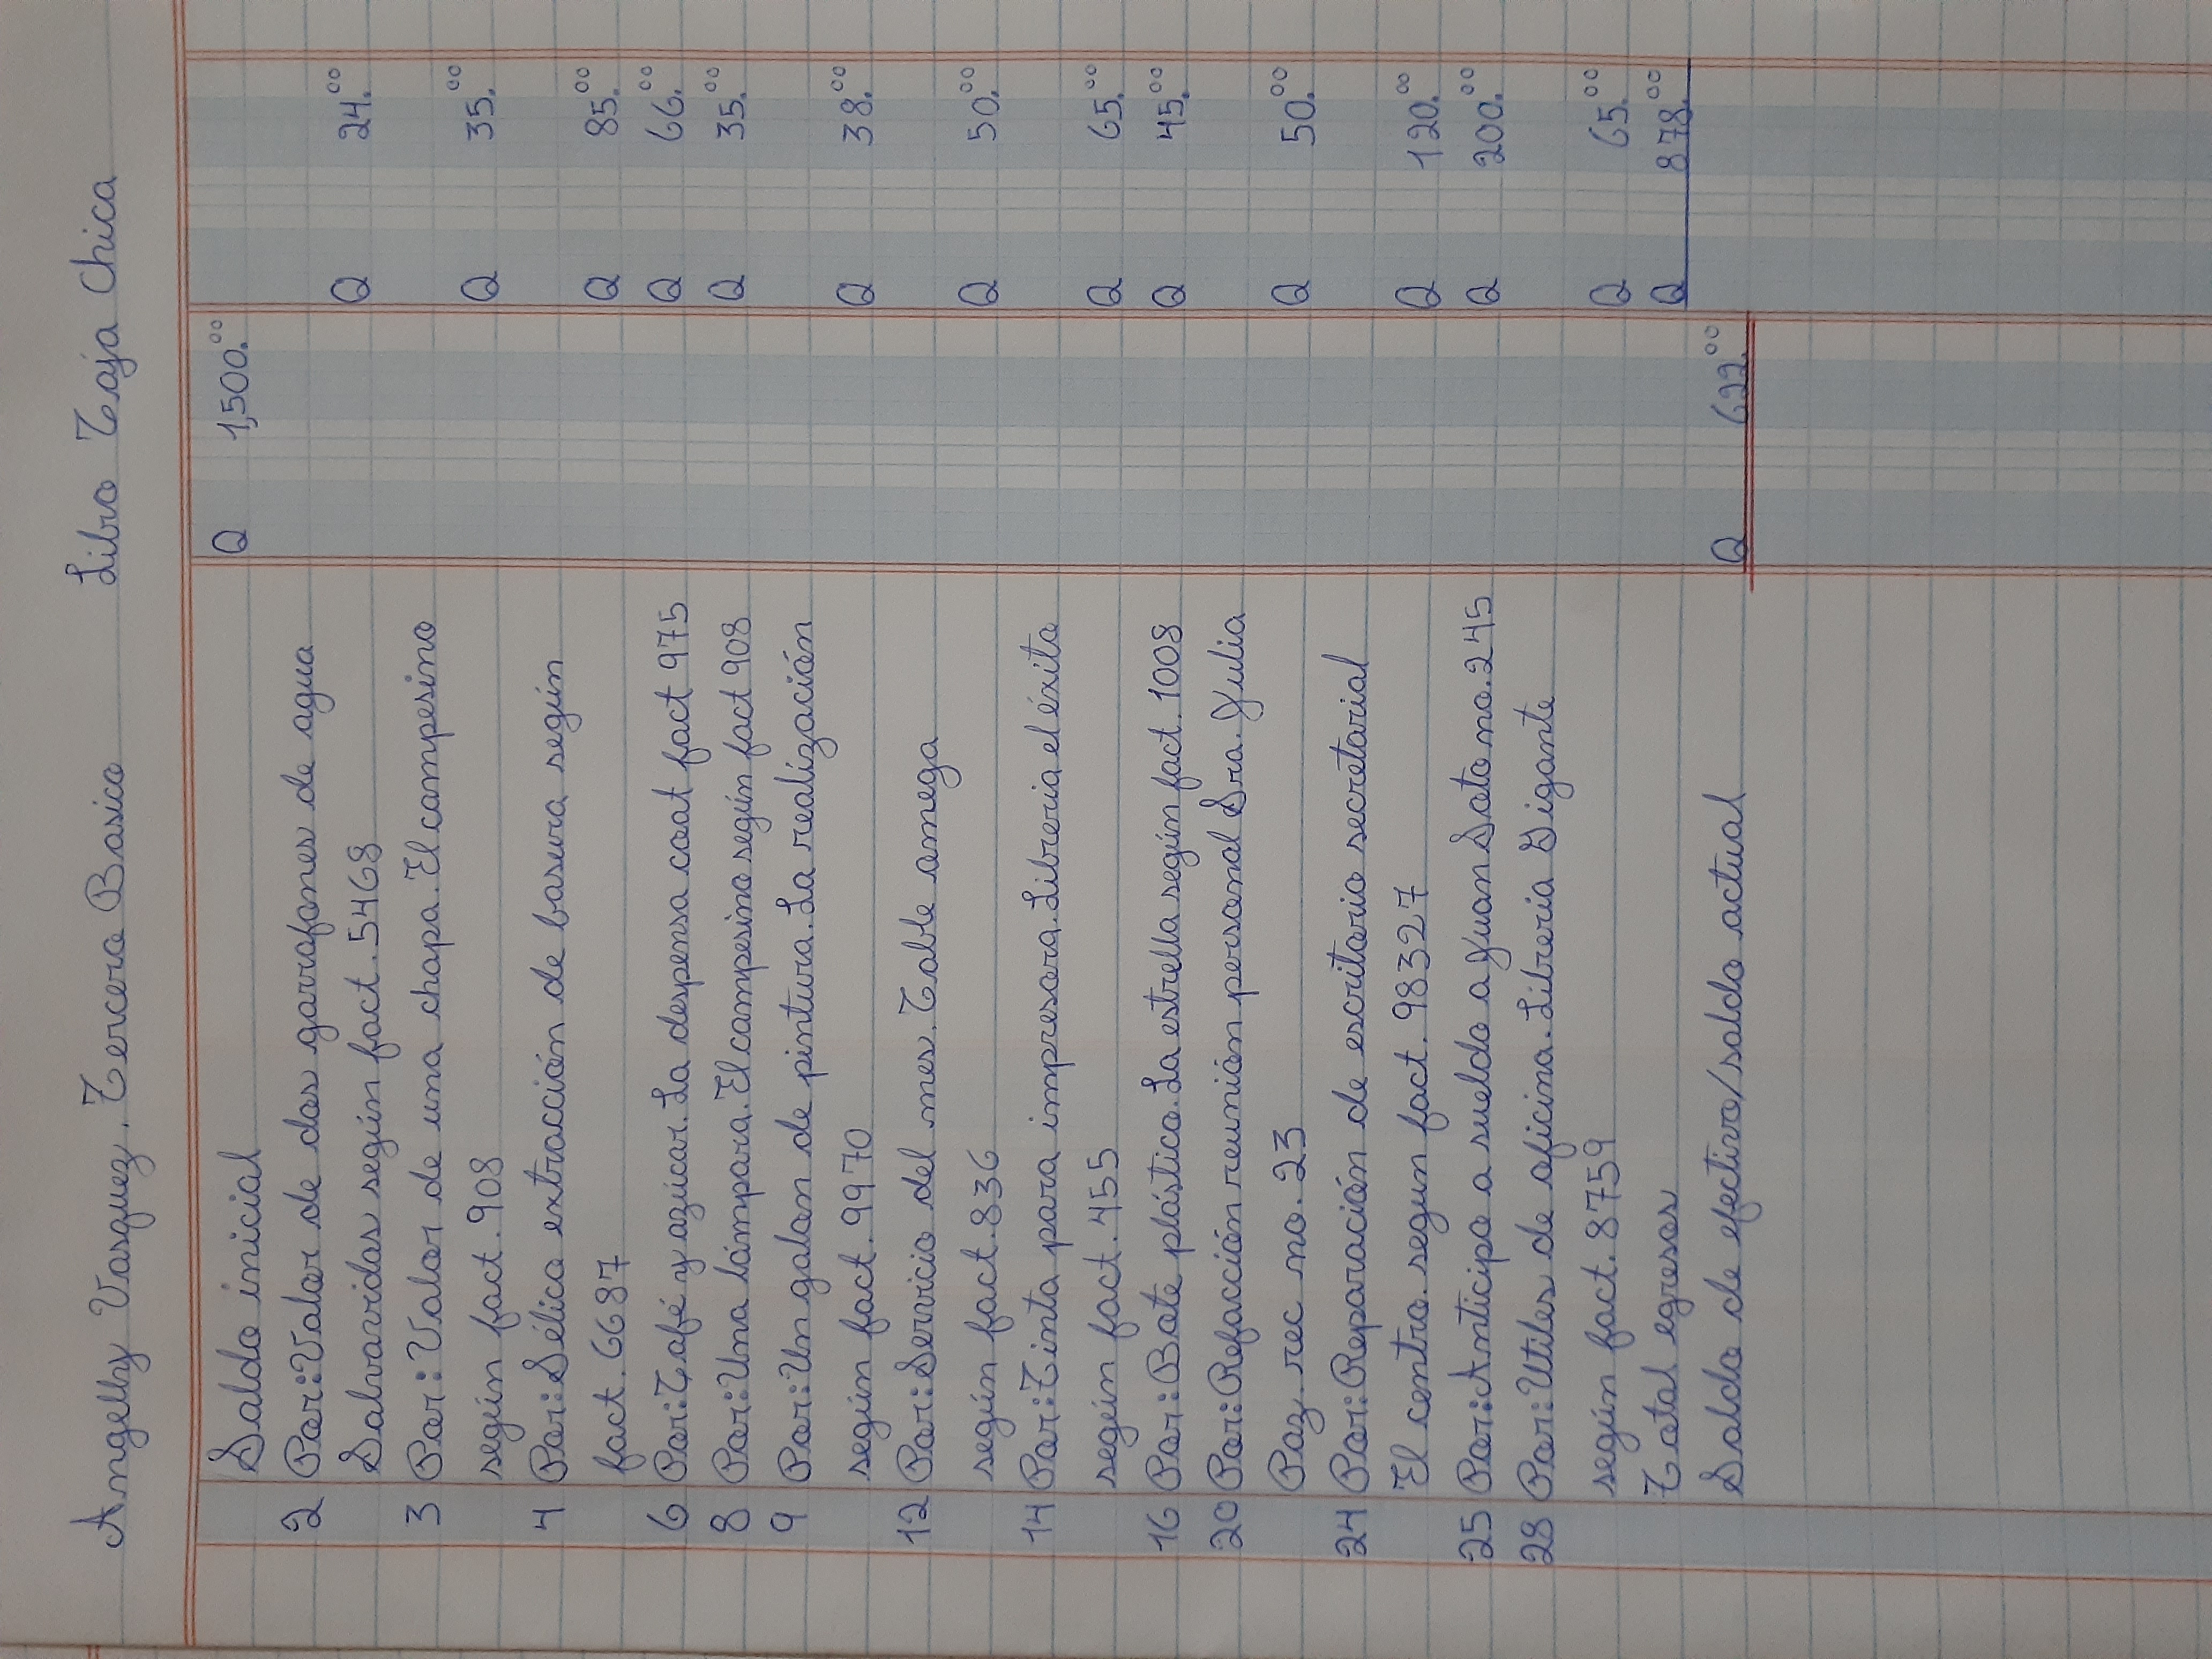 Angelly Vasquez. Tercero Basico Libro Caja Chica
Saldo inicial Q 1,500.00
2 Por: Valor de dos garrafones de agua
Salvavidas según fact. 5468 Q 24.00
3 Por: Valor de una chapa. El campesino
según fact. 908 Q 35.00
4 Por: Sélica extracción de basura según
fact. 6687 Q 85.00
6 Por: Café y azúcar. La despensa coat fact 975 Q 66.00
8 Por: Una lámpara. El campesino según fact 908 Q 35.00
9 Por: Un galon de pintura. La realización
según fact. 9970 Q 38.00
12 Por: Servicio del mes. Cable omega
según fact. 836 Q 50.00
14 Por: Tinta para impresora. Libreria el éxito
según fact. 455 Q 65.00
16 Por: Bote plástico. La estrella según fact. 1008 Q 45.00
20 Por: Refacción reunión personal Sra. Julia
Paz. rec no. 23 Q 50.00
24 Por: Reparación de escritorio secretarial
El centro. segun fact. 98327 Q 120.00
25 Por: Anticipo a sueldo a Juan Soto no. 245 Q 200.00
28 Por: Utiles de oficina. Libreria Gigante
según fact. 8759 Q 65.00
Total egresos Q 878.00
Saldo de efectivo/saldo actual Q 622.00